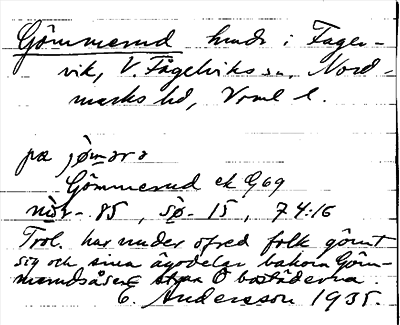 Gömmerud hmdr i Fager-
vik, V. Fågelviks sn, Nord-
marks hd, Vrml l.
pa jømərə
Gömmerud ek G69
nör- 85, sö- 15, 74:16
Trol. har under ofred folk gömt
sig och sina ägodelar bakom Göm-
merudsåsen strax Ö bostäderna.
E. Andersson 1935.